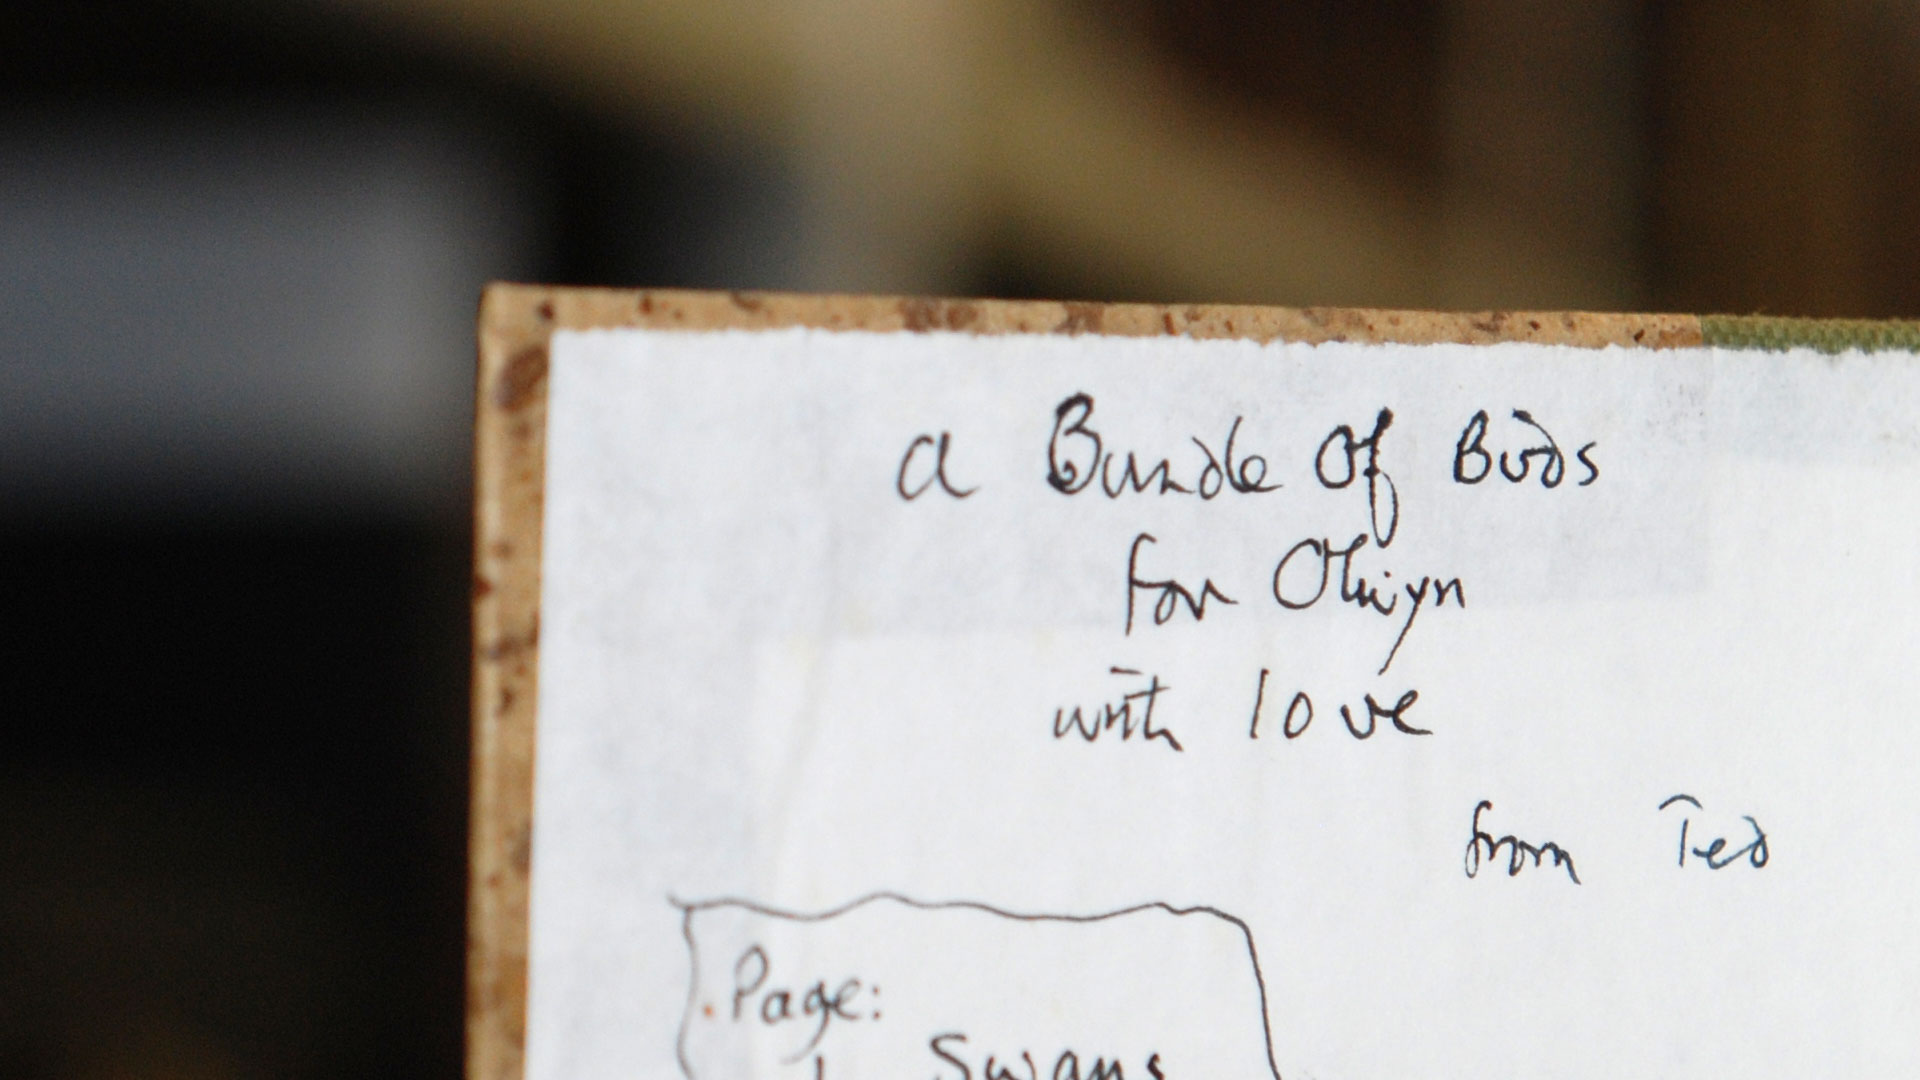 a Bundle Of Birds
for Olwyn
with love
from Ted
Page:
1 Swans